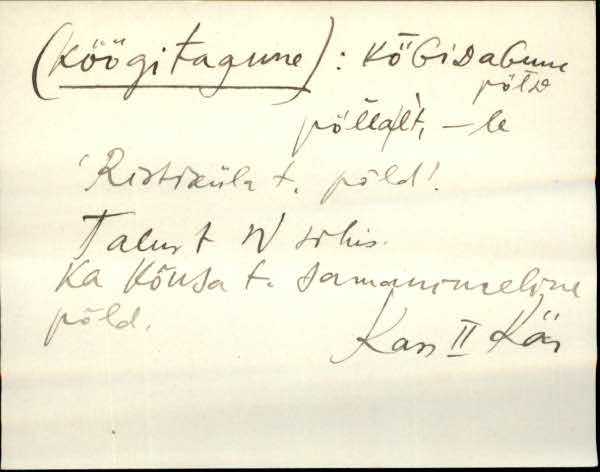 (Köögitagune): KȫGiDaGune
pȭlD
põllalt, -le
'Ristiküla t. põld'.
Talust W sihis.
Ka Kõusa t. samanimeline
põld.
Kan II Kär